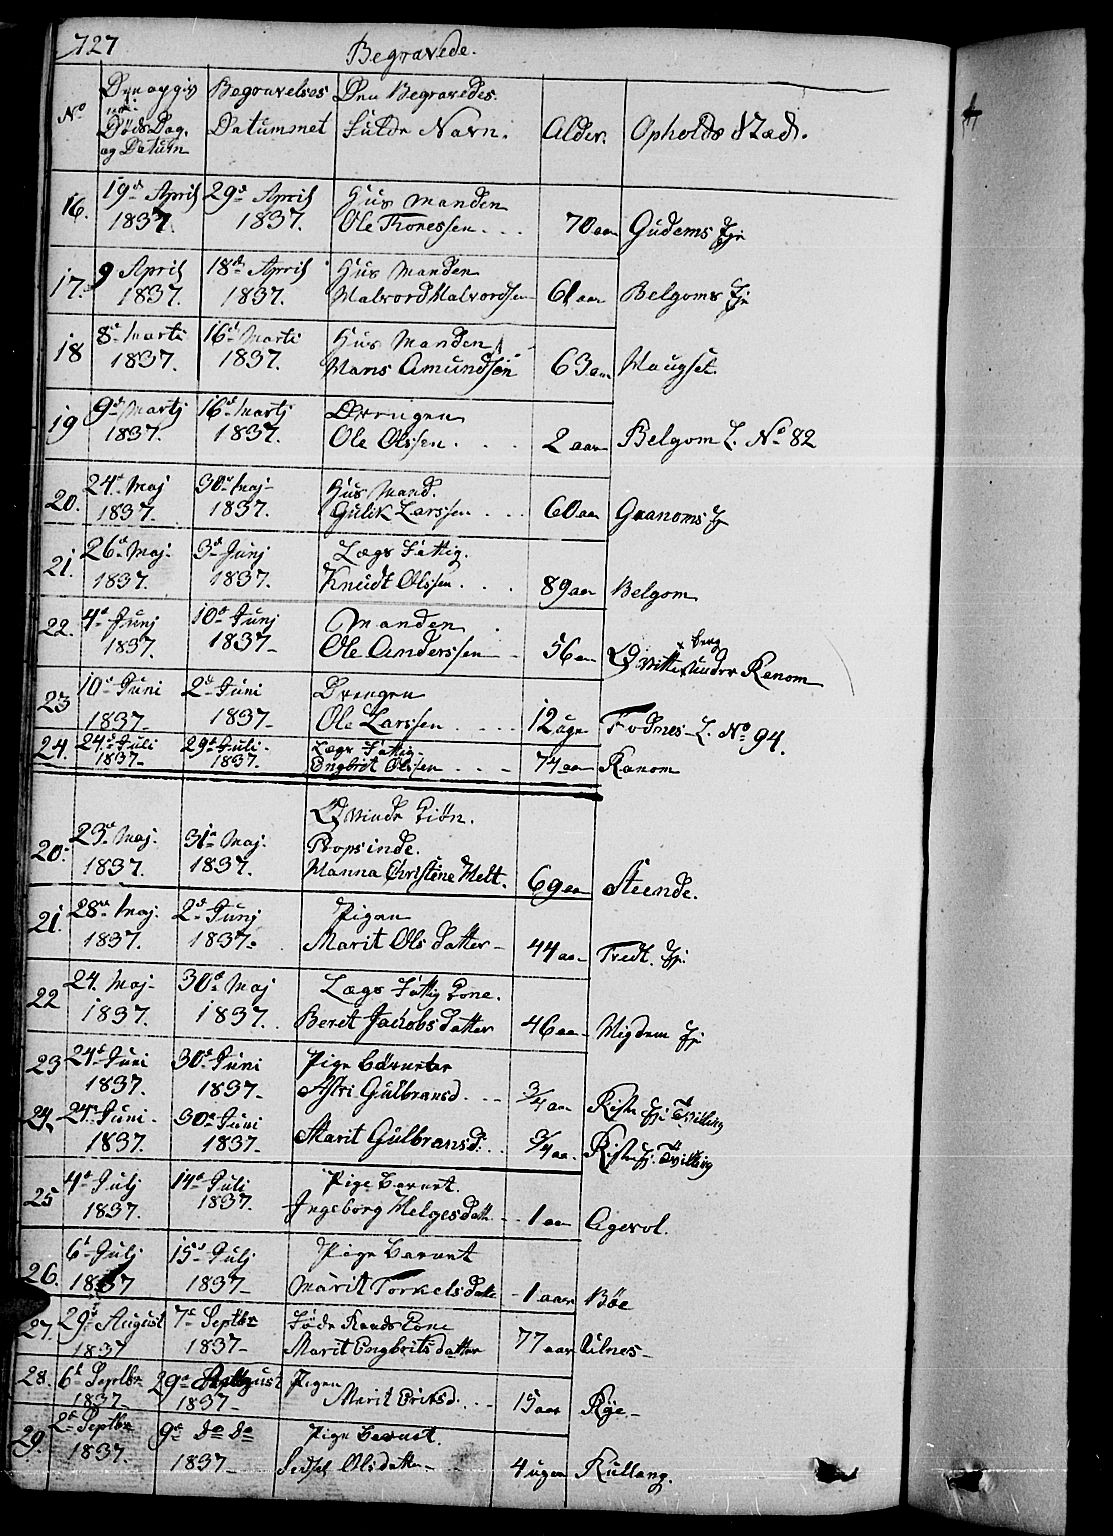 727
Begravede.
No Den opgivne Døds Dag. og Datum Begravelses Datummet Den Begravedes fulde Navn. Alder. Opholds Stæd.
16. 19de April 29de April Huus Manden
1837. 1837. Ole Thonessen . . . 70 aar Gudems Eje
17. 9 April 18de April Huus Manden
1837. 1837. Halvord Halvordsen 61 aar Belgoms Eje
18 8de Marti 16de Marti Huus Manden
1837. 1837. Hans Amundsen 63 aar Haugset
19 9de Martj 16de Martj Drengen
1837. 1837. Ole Olssen . . . 2 aar Belgom L. No 82
20. 24de Maj 30de Maj Huus Mand.
1837. 1837. Gulik Larssen . . . 60 aar Granoms Ej
21. 26de Maj. 3de Junj Lægs Fattig.
1837. 1837. Knudt Olssen . . . 89 aar Belgom
22. 4de Junj 10de Junj Manden
1837. 1837 Ole Anderssen 56 aar Qvitteberg under Ranom
23 10de Juni 2de Juni Drengen
1837 1837 Ole Larssen . . . . 12 uger Fodnes L. No 94.
24. 24de Juli 29de Juli Lægs Fattig
1837 1837. Engbrit Olssen . . . 74 aar Ranom
Qvinde Kiøn.
20. 23de Maj. 31te Maj. Propsinde.
1837. 1837. Hanna Christine Helt. 69 aar Steende.
21. 28de Maj. 2de Junj Pigen
1837. 1837. Marit Olsdatter 44 aar Tredt. Eje
22 24. Maj 30de Maj Lægs Fattig Kone.
1837. 1837. Beret Jacobsdatter 46 aar Migdem Eje
23 24de Juni 30de Juni Pige børneter
1837. 1837 Astri Gulbransd. . . . 3/4 aar Riste Eje Tvilling
24. 24de Juni 30de Juni
1837. 1837 Marit Gulbransd. . . 3/4 aar Riste Ej. Tvilling
25 4de Julj 14de Juli Pige barnet.
1837. 1837. Ingeborg Helgesdatt. 1 aar Agerol.
26. 6te Julj 15de Julj Pige barnet
1837 1837 Marit Torkelsdatt 1 aar Bøe
27. 29de August 7de Septbr Føde Raads Kone
1837 1837 Marit Engbritsdatter 77 aar Ulnes
28. 6te Septbr 29de August Pigen
1837 1837 Marit Eriksd. . . 15 aar Røe
29. 2de Septbr 9de do do Pige barnet.
1837. 1837 Sidsel Olsdatter 4 uger Rullang.